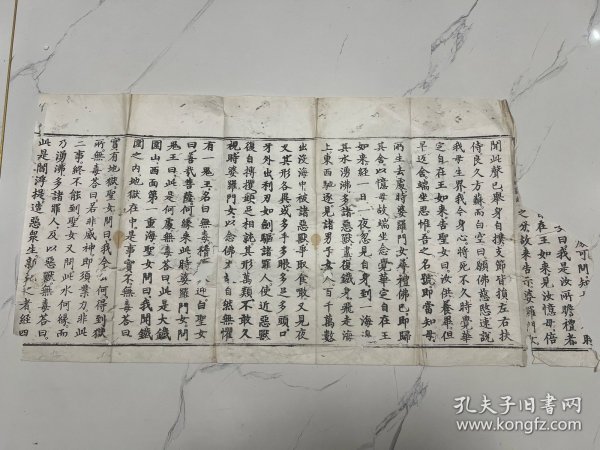 可問知
曰我是汝所瞻禮者
在王如來見汝憶母倍
之分故來告示婆羅門女
聞此聲已舉身自撲支節皆損左右扶
侍良久方蘇而白空曰願佛慈愍速說
我母生界我今身心將死不久時覺華
定自在王如來告聖女曰汝供養畢但
早返舍端坐思惟吾之名號即當知母
所生去處時婆羅門女尋禮佛已即歸
其舍以憶母故端坐念覺華定自在王
如來經一日一夜忽見自身到一海邊
其水湧沸多諸惡獸盡復鐵身飛走海
上東西馳逐見諸男子女人百千萬數
出沒海中被諸惡獸爭取食敢又見夜
叉其形各異或多手多眼多足多頭口
牙外出利刃如劍驅諸罪人使近惡獸
復自搏攫頭足相就其形萬類不敢久
視時婆羅門女以念佛力自然無懼
有一鬼王名曰無毒稽迎白聖女
曰善哉菩薩何緣來此時婆羅門女問
鬼王曰此是何處無毒答曰此是大鐵
圍山西面第一重海聖女問曰我聞鐵
圍之內地獄在中是事實不無毒答曰
實有地獄聖女問曰我今何得到獄
所無毒答曰若非威神即須業力非此
二事終不能到聖女又問此水何緣而
乃湧沸多諸罪人及以惡獸無毒答曰
此是閻浮提造惡眾生新死之者經四
孔夫子旧书网
www.kongfz.com